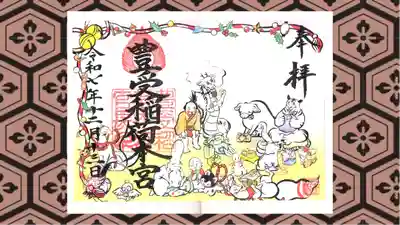 奉拝
豊受稲荷本宮
令和七年十二月十三日